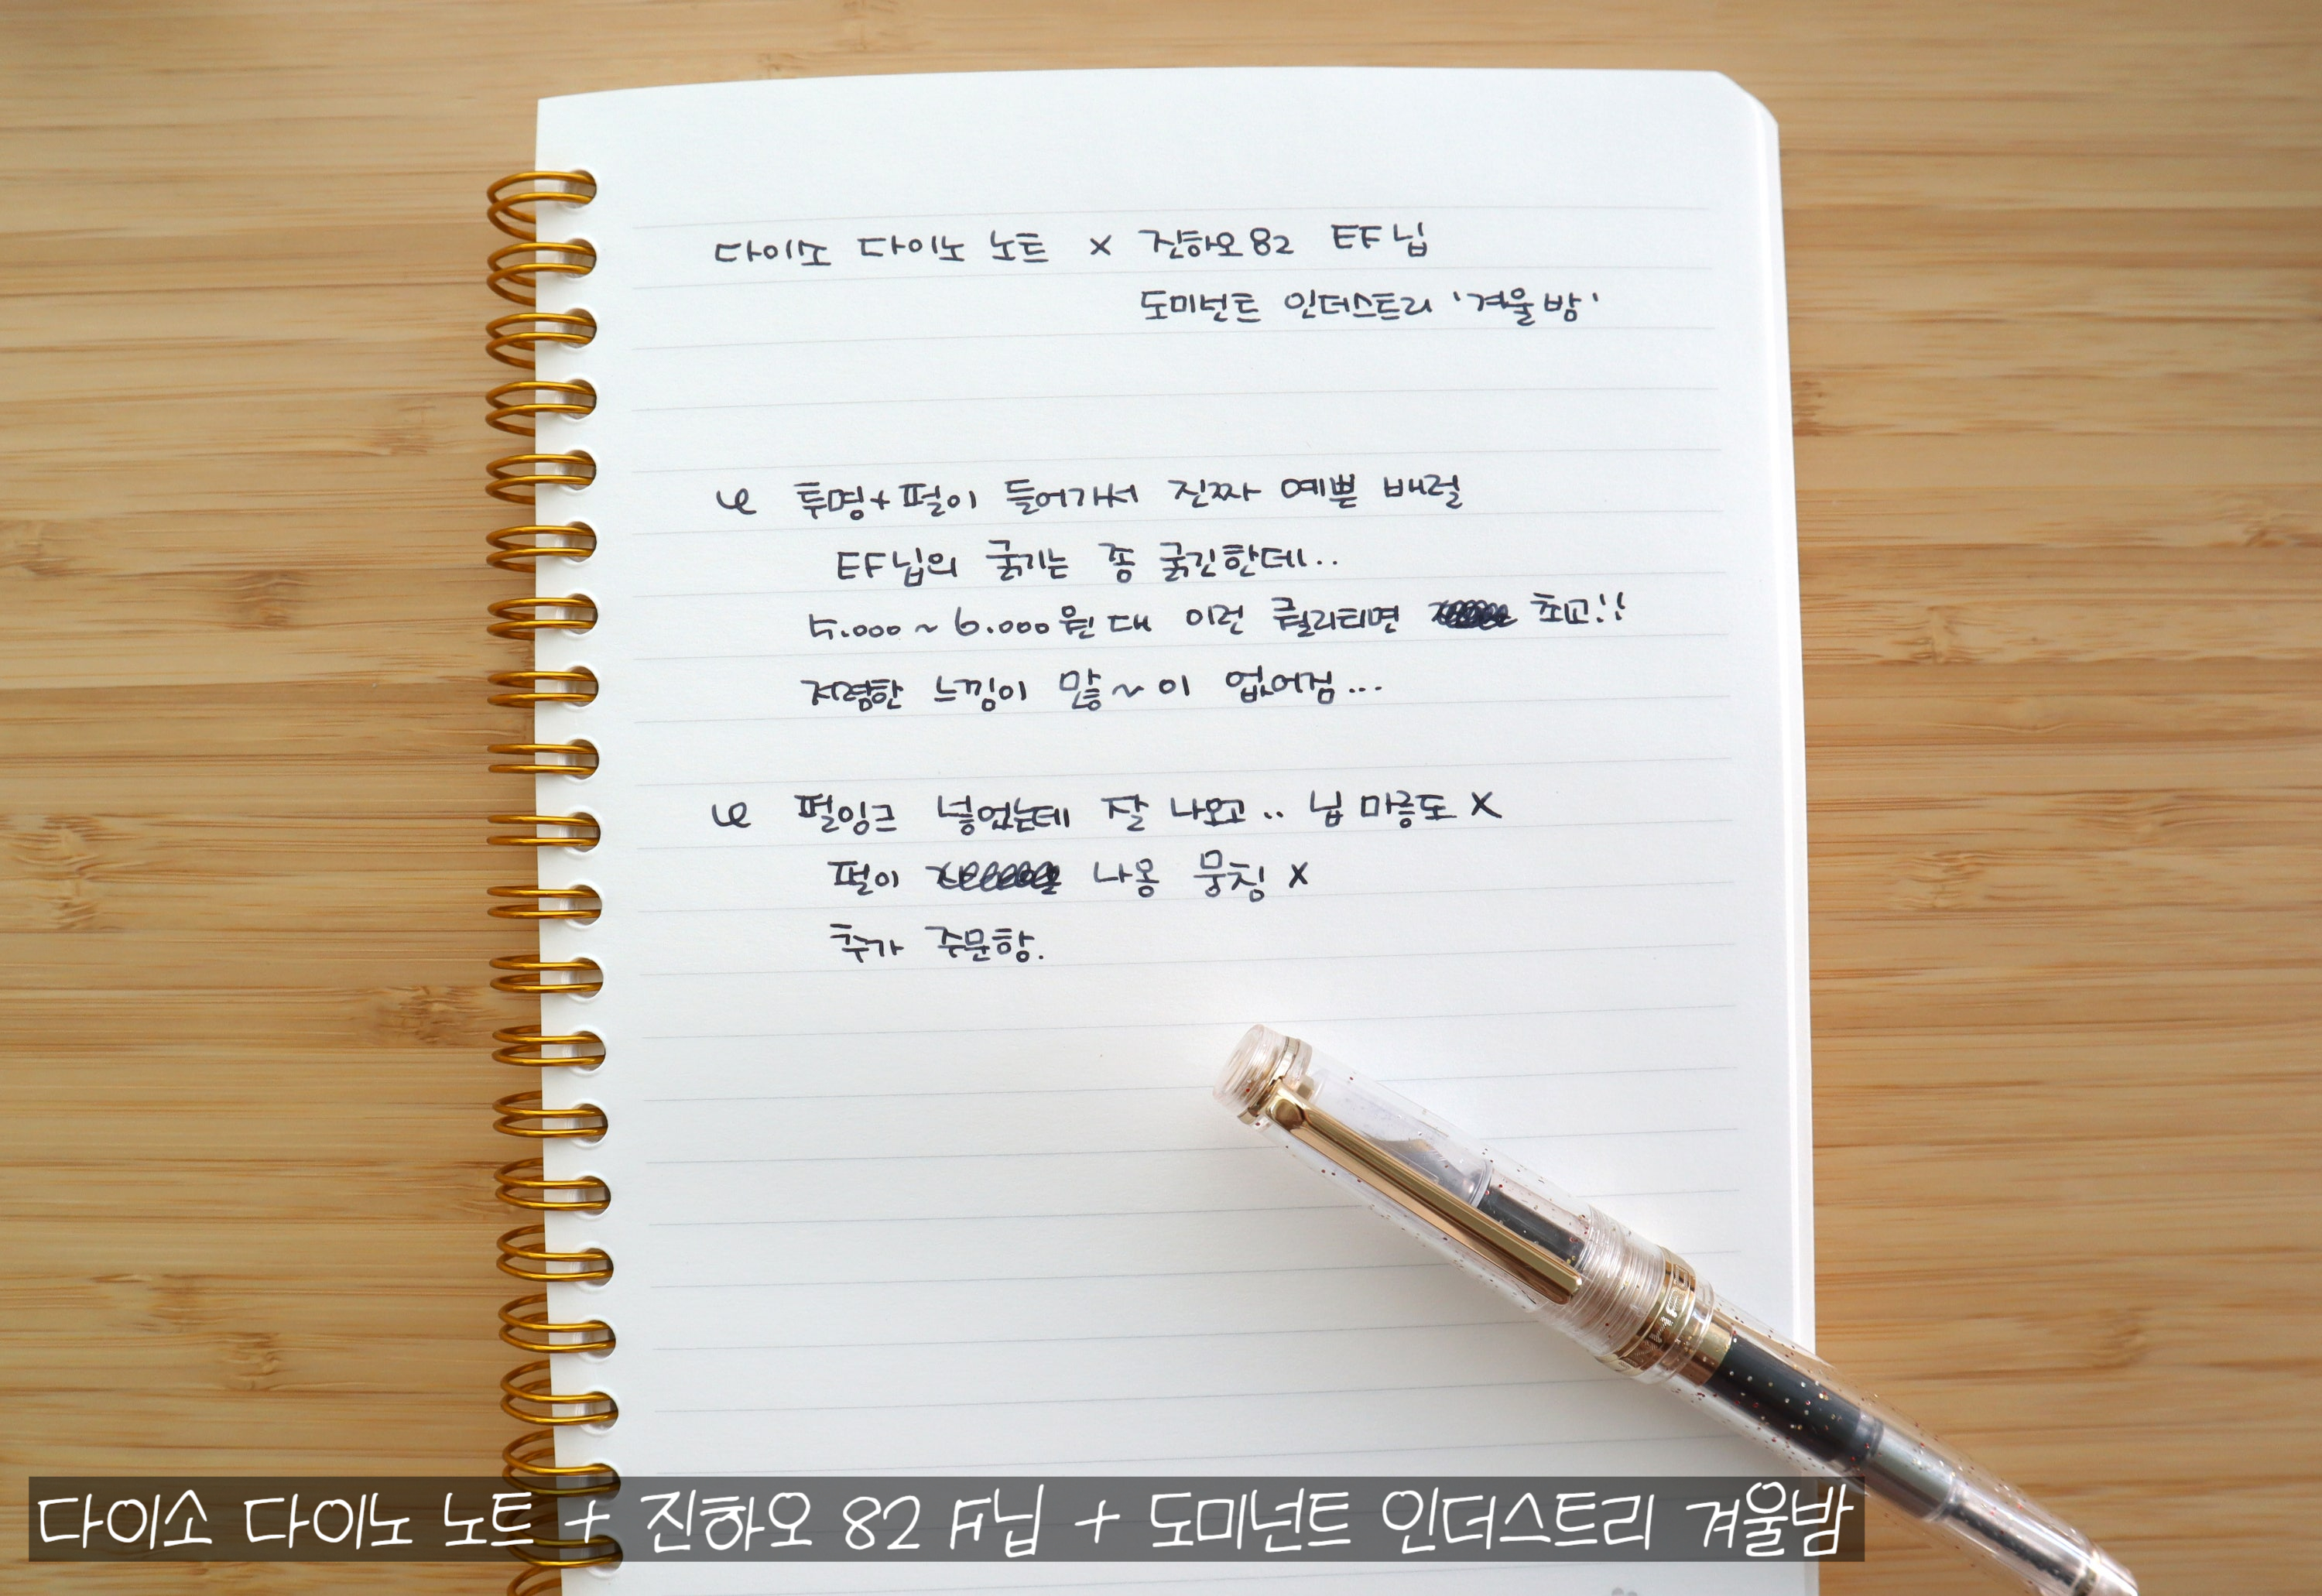 다이소 다이노 노트 × 진하오 82 EF닙
도미넌트 인더스트리 '겨울밤'
투명+펄이 들어가서 진짜 예쁜 배럴
EF닙의 굵기는 좀 굵긴한데..
5.000~6.000원대 이런 퀄리티면 최고!!
저렴한 느낌이 많~이 없어짐...
펄잉크 넣었는데 잘 나오고.. 닙마름도 X
펄이 나옴 뭉침 X
추가 주문함.
다이소 다이노 노트 + 진하오 82 F닙 + 도미넌트 인더스트리 겨울밤